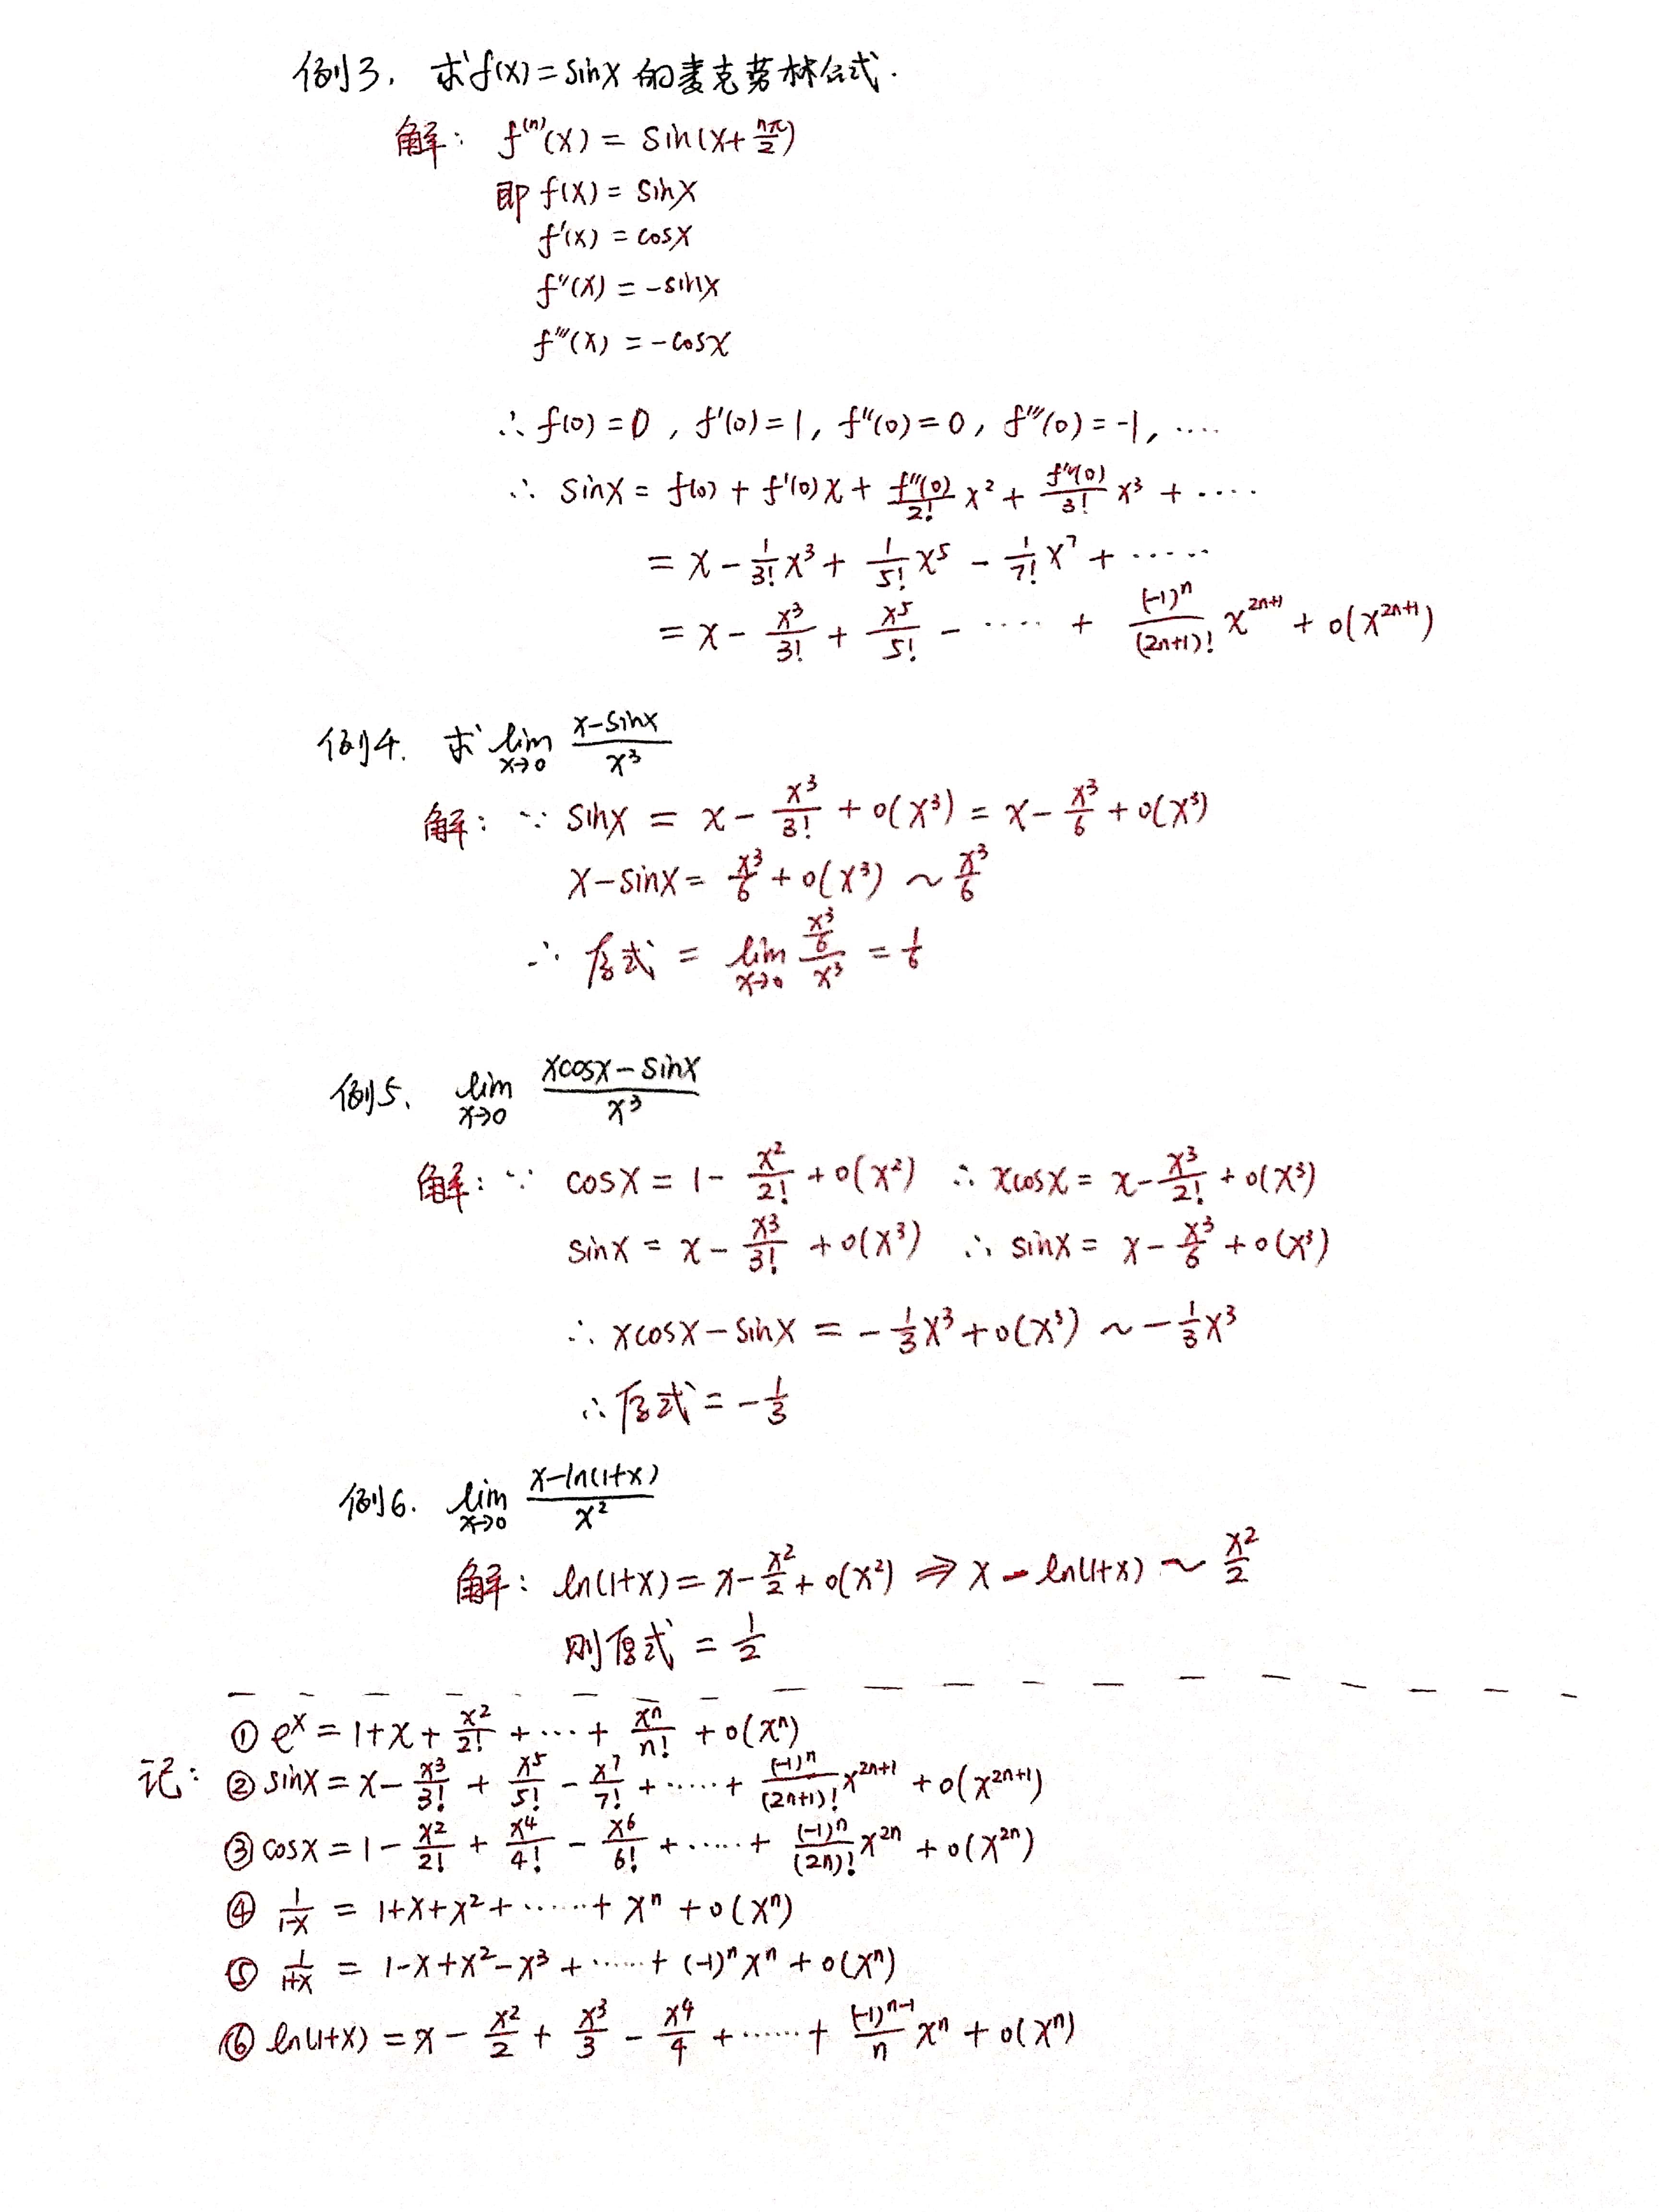 例3. 求f(x)=sinx的麦克劳林公式.
解: f⁽ⁿ⁾(x) = sin(x+nπ/2)
即 f(x) = sinx
f'(x) = cosx
f''(x) = -sinx
f'''(x) = -cosx
∴ f(0)=0, f'(0)=1, f''(0)=0, f'''(0)=-1, ····
∴ sinx = f(0) + f'(0)x + f''(0)/2! x² + f'''(0)/3! x³ + ····
= x - 1/3! x³ + 1/5! x⁵ - 1/7! x⁷ + ·····
= x - x³/3! + x⁵/5! - ····· + (-1)ⁿ/(2n+1)! x²ⁿ⁺¹ + o(x²ⁿ⁺¹)
例4. 求 lim x→0 (x-sinx)/x³
解: ∵ sinx = x - x³/3! + o(x³) = x - x³/6 + o(x³)
x-sinx = x³/6 + o(x³) ~ x³/6
∴ 原式 = lim x→0 (x³/6)/x³ = 1/6
例5. lim x→0 (xcosx-sinx)/x³
解: ∵ cosx = 1 - x²/2! + o(x²) ∴ xcosx = x - x³/2! + o(x³)
sinx = x - x³/3! + o(x³) ∴ sinx = x - x³/6 + o(x³)
∴ xcosx-sinx = -1/3 x³ + o(x³) ~ -1/3 x³
∴ 原式 = -1/3
例6. lim x→0 (x-ln(1+x))/x²
解: ln(1+x) = x - x²/2 + o(x²) ⇒ x - ln(1+x) ~ x²/2
则原式 = 1/2
① eˣ = 1+x+x²/2! + ··· + xⁿ/n! + o(xⁿ)
记: ② sinx = x - x³/3! + x⁵/5! - x⁷/7! + ····· + (-1)ⁿ/(2n+1)! x²ⁿ⁺¹ + o(x²ⁿ⁺¹)
③ cosx = 1 - x²/2! + x⁴/4! - x⁶/6! + ····· + (-1)ⁿ/(2n)! x²ⁿ + o(x²ⁿ)
④ 1/(1-x) = 1+x+x²+ ······ + xⁿ + o(xⁿ)
⑤ 1/(1+x) = 1-x+x²-x³+ ······ + (-1)ⁿxⁿ + o(xⁿ)
⑥ ln(1+x) = x - x²/2 + x³/3 - x⁴/4 + ······ + (-1)ⁿ⁻¹/n xⁿ + o(xⁿ)